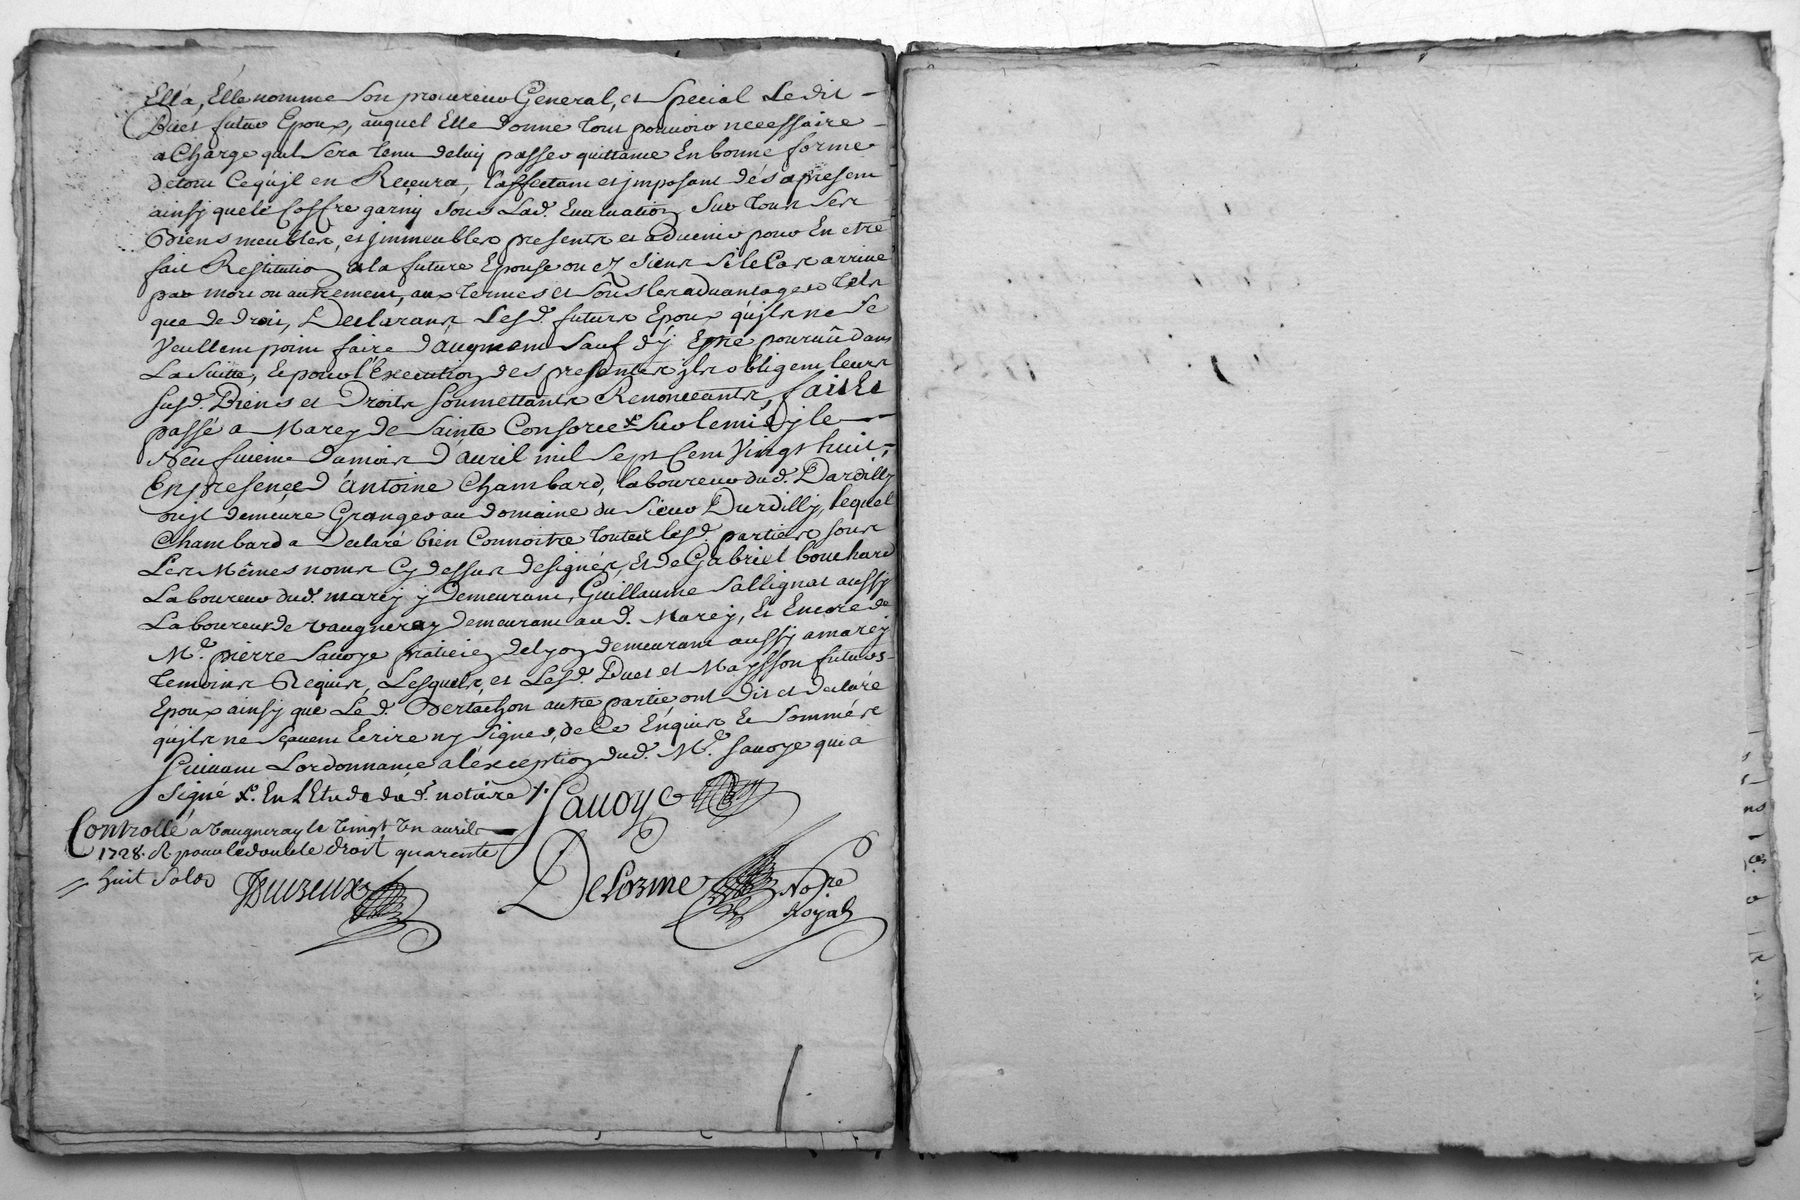 Ella, Elle nomme Son procureur General, et Special Le dit
Duet futur Epoux, auquel Elle donne tout pouvoir necessaire
a Charge quil Sera tenu deluy passer quittance En bonne forme
detout Cequ'jl en Recevra, L'affectant et jmposant dés apresent
ainsy quele Coffre garny Sous Lad. Evaluation Sur tous Ses
Biens meubles, et jmmeubles presents et advenir pour En etre
fait Restitution ala future Epouse ou ez Siens Si le Cas arrive
par mort ou autrement, aux termes et Sous les advantages tels
que de droit, Declarans Lesd. futurs Epoux qu'jls ne Se
Veullent point faire d'augment Sauf d'ÿ Etre pourvû dans
La Suitte, Et pour l'Execution des presentes jls obligent leurs
Susd. Biens et Droits Soumettants Renonceants, fait Et
passé a Marcy de Sainte Consorce x Sur le midy le
Neufvieme du mois d'avril mil Sept Cent Vingt huit,
En presence d'antoine Chambard, laboureur dud. Dardilly
ou jl demeure Granger au domaine du Sieur Durdilly, lequel
Chambard a Declaré bien Connoitre toutes lesd. parties Sous
Les Mêmes noms Cy dessus designés, Et de Gabriel bouchard
Laboureur dud. marcy y demeurant, Guillaume Sallignat aussy
Laboureur de vaugneray demeurant aud. Marcy, Et Encore de
Me. pierre Savoye praticien delyon demeurant aussy a marcy
temoins Requis, Lesquels et Lesd. Duet et Maysson futurs
Epoux ainsy que Led. Bertachon autre partie ont dit et declaré
qu'jls ne Sçavent Ecrire ny Signer, de Ce Enquis Et Sommés
Suivant Lordonnance al'exception dud. Me. Savoye qui a
Signé x. En L'Etude dud. notaire /.
Savoye
Controllé a vaugneray le vingt un avril
1728. R pour le double droit quarente
huit Sols
DeLorme Nore
Royal